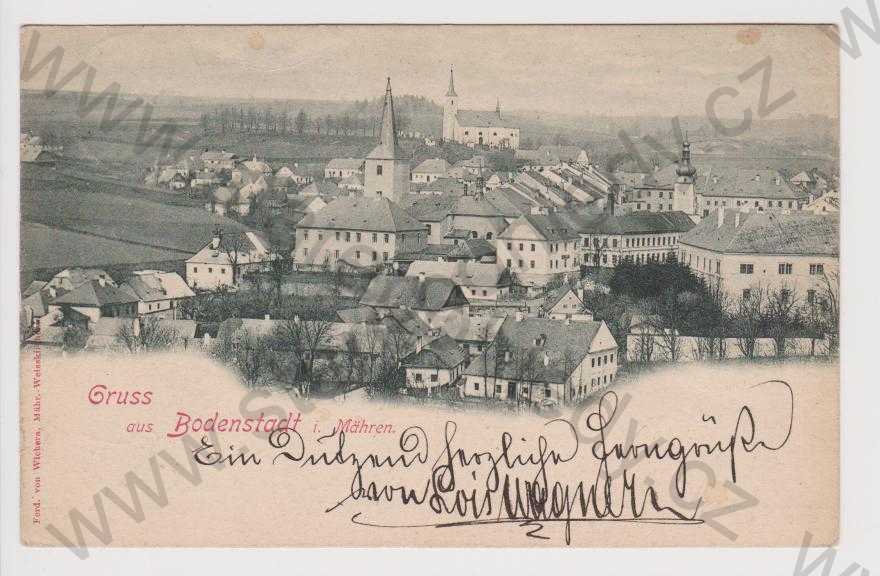 Gruss
aus Bodenstadt i. Mähren.
Ein Dutzend herzliche Ferngrüße
von Lois Wagner
Ferd. von Wichera, Mähr.-Weisskirchen